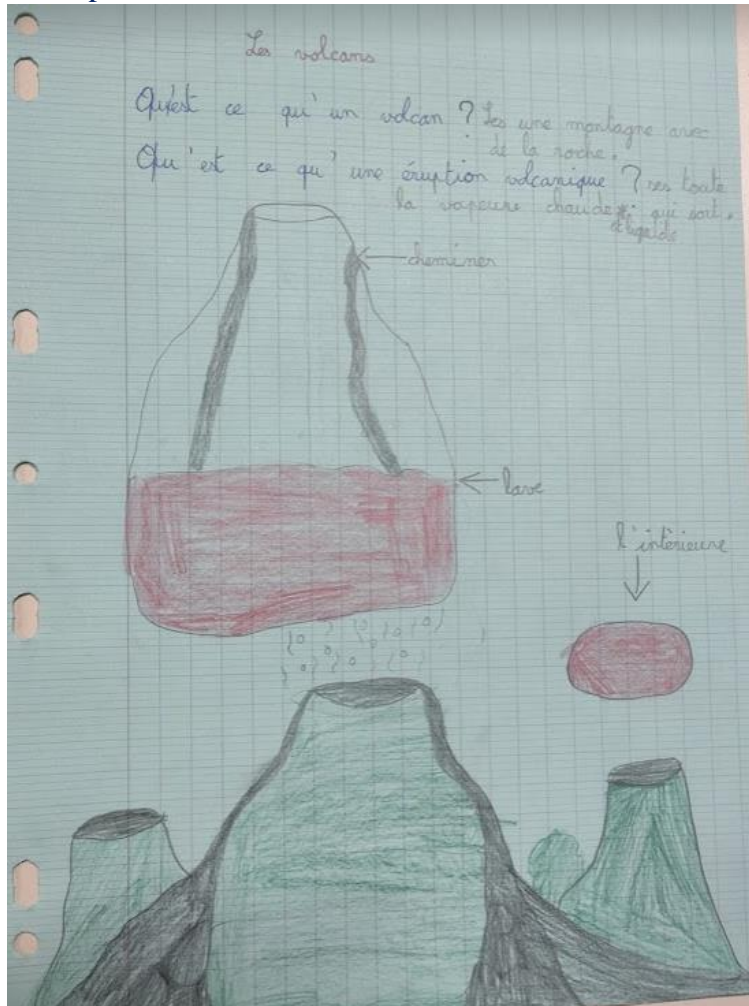 Les volcans
Qu'est ce qu'un volcan ? Ses une montagne avec
de la roche.
Qu'est ce qu'une éruption volcanique ? ses toute
la vapeure chaude qui sort.
et liquide
cheminer
lave
l'intérieure